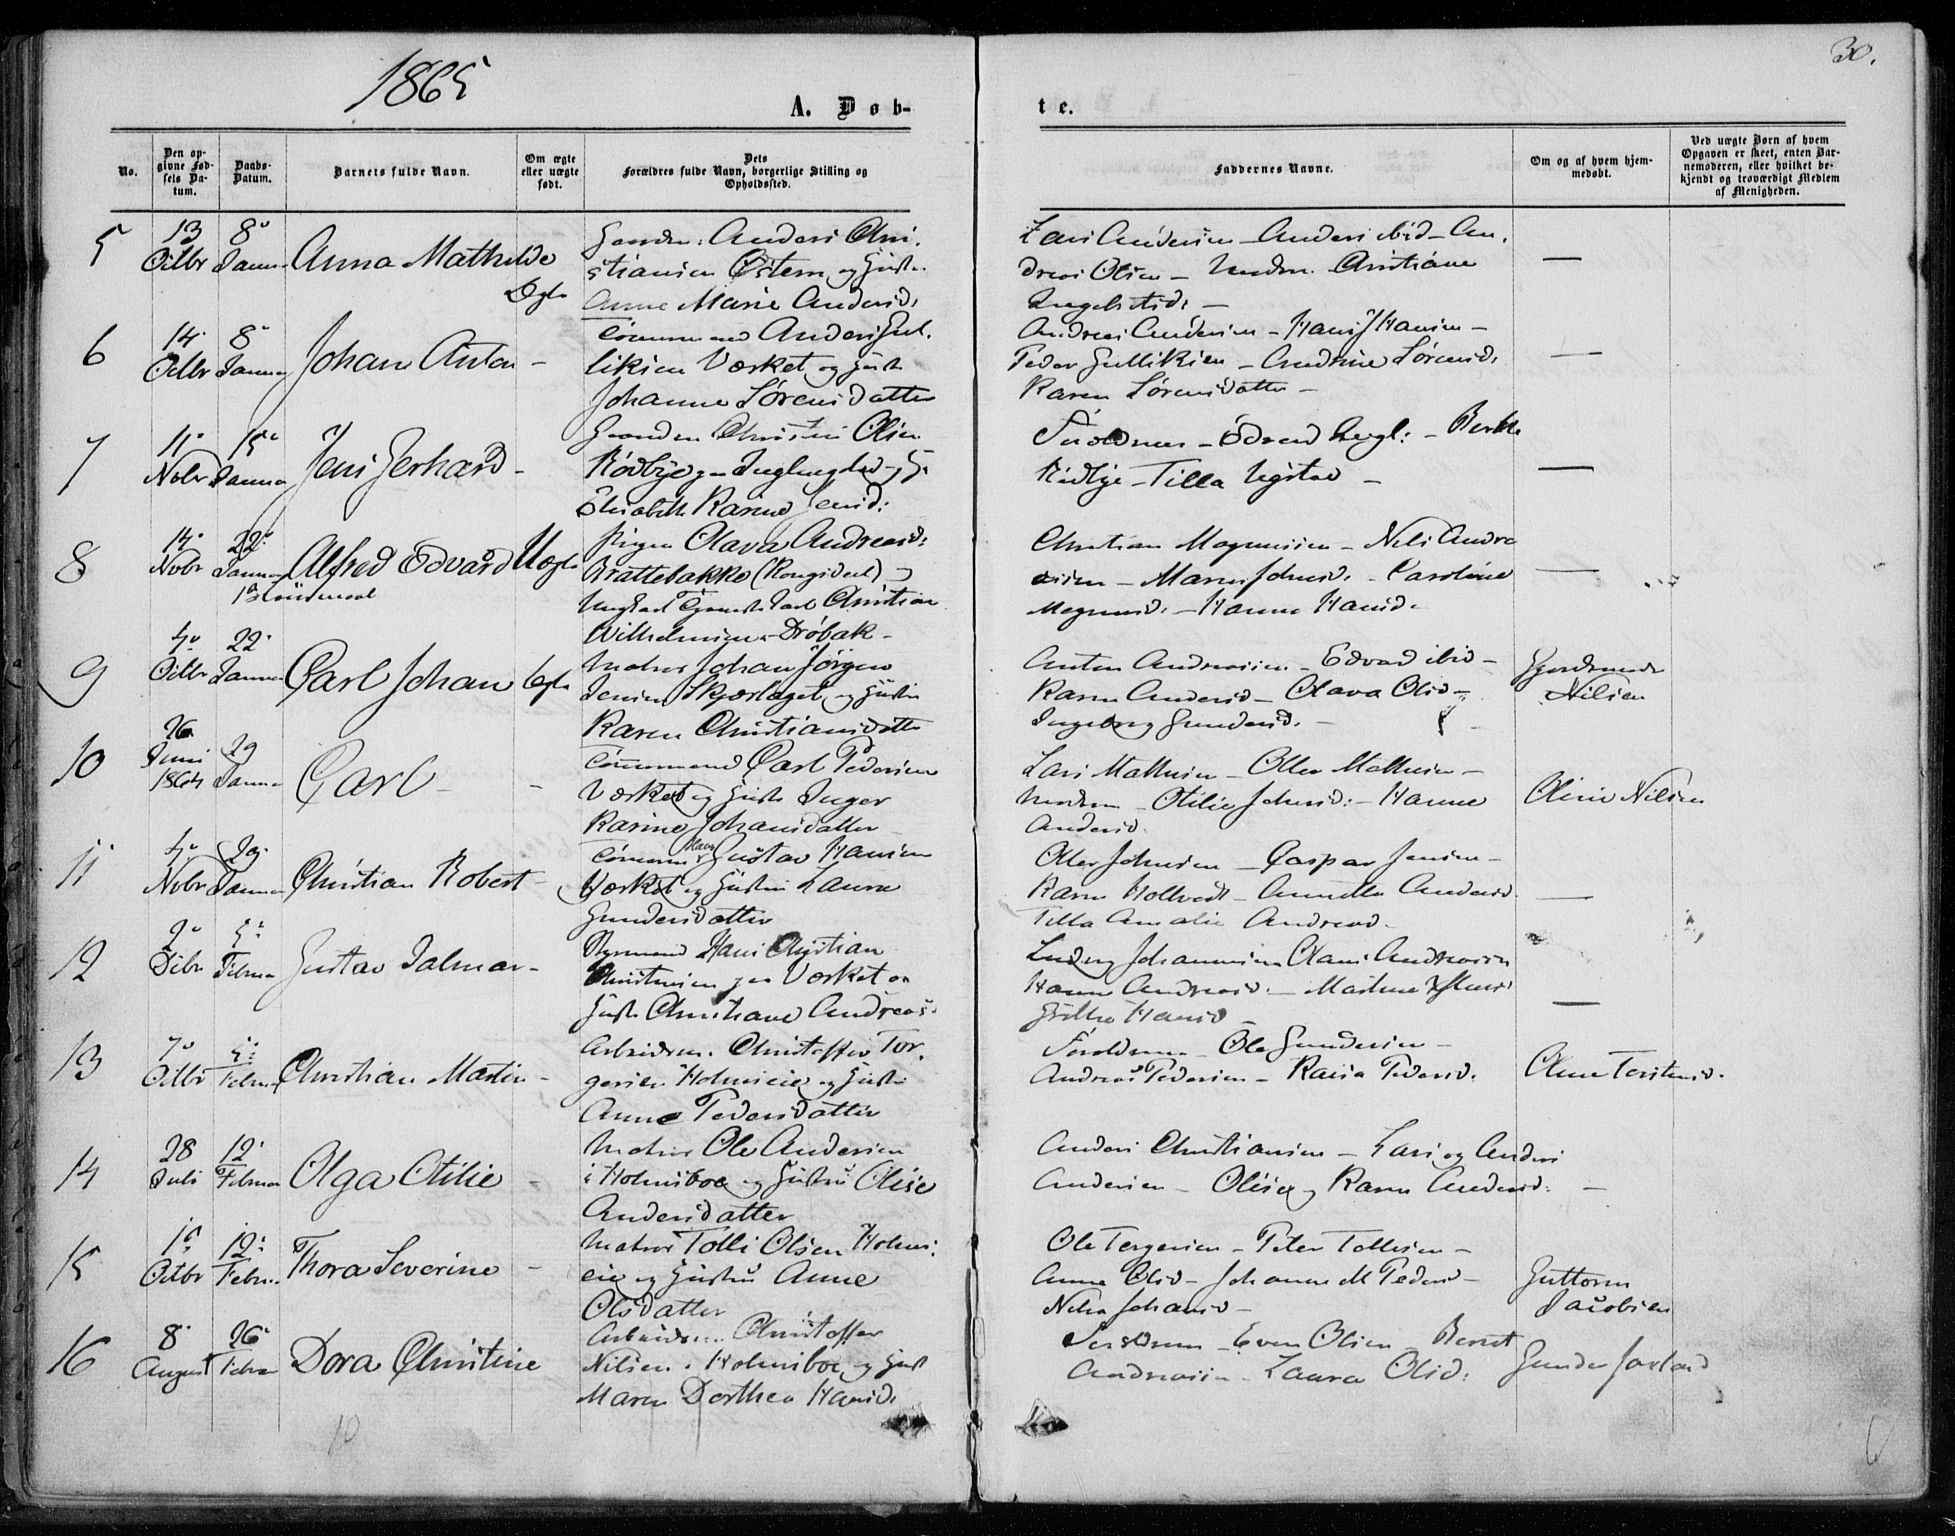 1865
30.
A. Døb-
te.
No.
Den op-
givne Fød-
sels Da-
tum.
Daabs-
Datum.
Barnets fulde Navn.
Om ægte
eller uægte
født.
Dets
Forældres fulde Navn, borgerlige Stilling og
Opholdssted.
Faddernes Navne.
Om og af hvem hjem-
medøbt.
Ved uægte Børn af hvem
Opgaven er skeet, enten Bar-
nemoderen, eller hvilket be-
kjendt og troværdigt Medlem
af Menigheden.
5
13
Octbr
8
Janua
Anna Mathilde
Anders Chri-
stiansen Østern og Hustru
Anne Marie Andersd:
Lars Andersen - Anders ibid - An-
dreas Olsen - Christiane
Ingebretsd: -
6
14
Octbr
8
Janua
Johan Anton -
Tømmermand Anders Gul-
liksen Værket og Hustru
Johanne Sørensdatter
Andreas Andersen - Hans J Hansen -
Peder Gulliksen - Andrine Sørensd:
Karen Sørensdatter -
7
11
Novbr
15
Janua
Jens Gerhard -
Gaardm Olsen
Rødbye
Elisabeth Karine Jensd:
Forældrene -
Rødbye - Tilla
8
14
Novbr
22
Janua
Alfred Edvard
Uægte
Pigen Olava Andreasd:
Brattebakke (Kongsdel)
Ungkarl Christian
Wilhelmsen - Drøbak -
Christian Magnussen - Nils Andre
assen - Maren Johnsd. - Caroline
Magnusd. - Hanne Hansd.
9
4
Octbr
22
Janua
Carl Johan
Ægte
Matros Johan Jörgen
Jensen Skjærlaget og Hustru
Karen Christiansdatter
Anton Andreassen - Edvard ibid -
Karen Andersd - Olava Olsd -
Ingeborg Gundersd. -
Gjordemoder
Nilsen
10
26
Juni
1864
29
Janua
Carl -
-
Tømmermand Carl Pedersen
Værket og Hustru Inger
Karine Johansdatter
Lars Mathisen - Oller Mathisen -
Otilie Johnsd: - Hanne
Andersd.
Oline Nilsen
11
4
Novbr
29
Janua
Christian Robert -
Tømmerm Hans Gustav Hansen
Værket og Hustru Laura
Gundersdatter
Oller Johnsen - Caspar Jensen -
Karen Holtvedt - Andersd.
Tilla Amalie Andreasd -
12
2
Debr
5
Februa
Gustav Jalmar -
Styrmand Hans Christian
Christensen paa Værket og
Hustru Christiane Andreasd
Ludvig Johannesen Andreassen
Hanne Andreasd. - Mathea
Hansd -
13
7
Octbr
5
Februa
Christian Martin -
Arbeidsm. Christoffer Tor-
gersen Holmseie og Hustru
Anne Pedersdatter
Forældrene - Ole Gundersen -
Andreas Pedersen - Raisa Pedersd.
Anne Torstensd.
14
28
Juli
12
Februa
Olga Otilie -
Matros Ole Andersen
i Holmsboe og Hustru Olise
Andersdatter
Anders Christiansen - Lars og Anders
Andersen - Olise og Karen Andersd: -
15
15
Octbr
12
Febru
Thora Severine -
Matros Tolli Olsen Holms-
eie og Hustru Anne
Olsdatter
Ole Torgersen - Peter Tollisen -
Anne Olsd - Johanne M Pedersd -
Johansd -
Guttorm
Jacobsen
16
8
August
26
Febru
Dora Christine
Arbeidsm. Christoffer
Nilsen. Holmsboe og Hust
Maren Dorthea Hansd.
Forældrene - Even Olsen Bernt
Andreassen - Laura Olsd.
Gunder Joxland
10